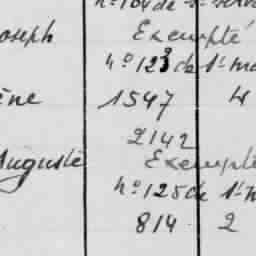 n° 104 de
oseph Exempté
n° 123 de St-Ma
ène 1547 4
2142
Auguste Exempté
n° 125 de St-M
814 2